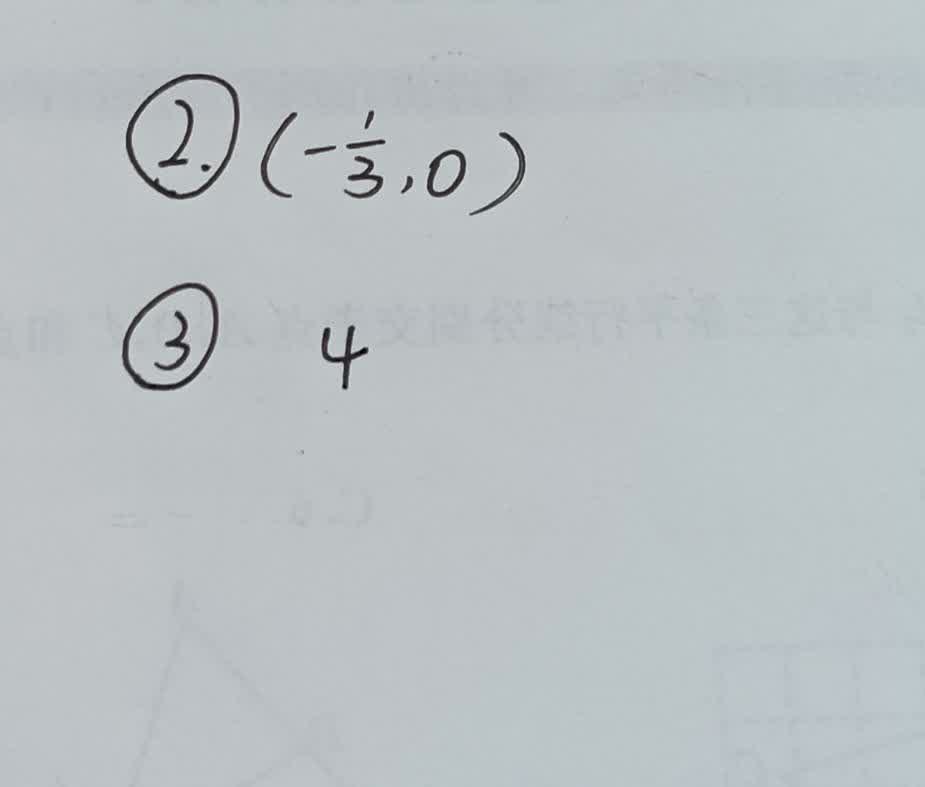 ②. (-1/3, 0)
③ 4